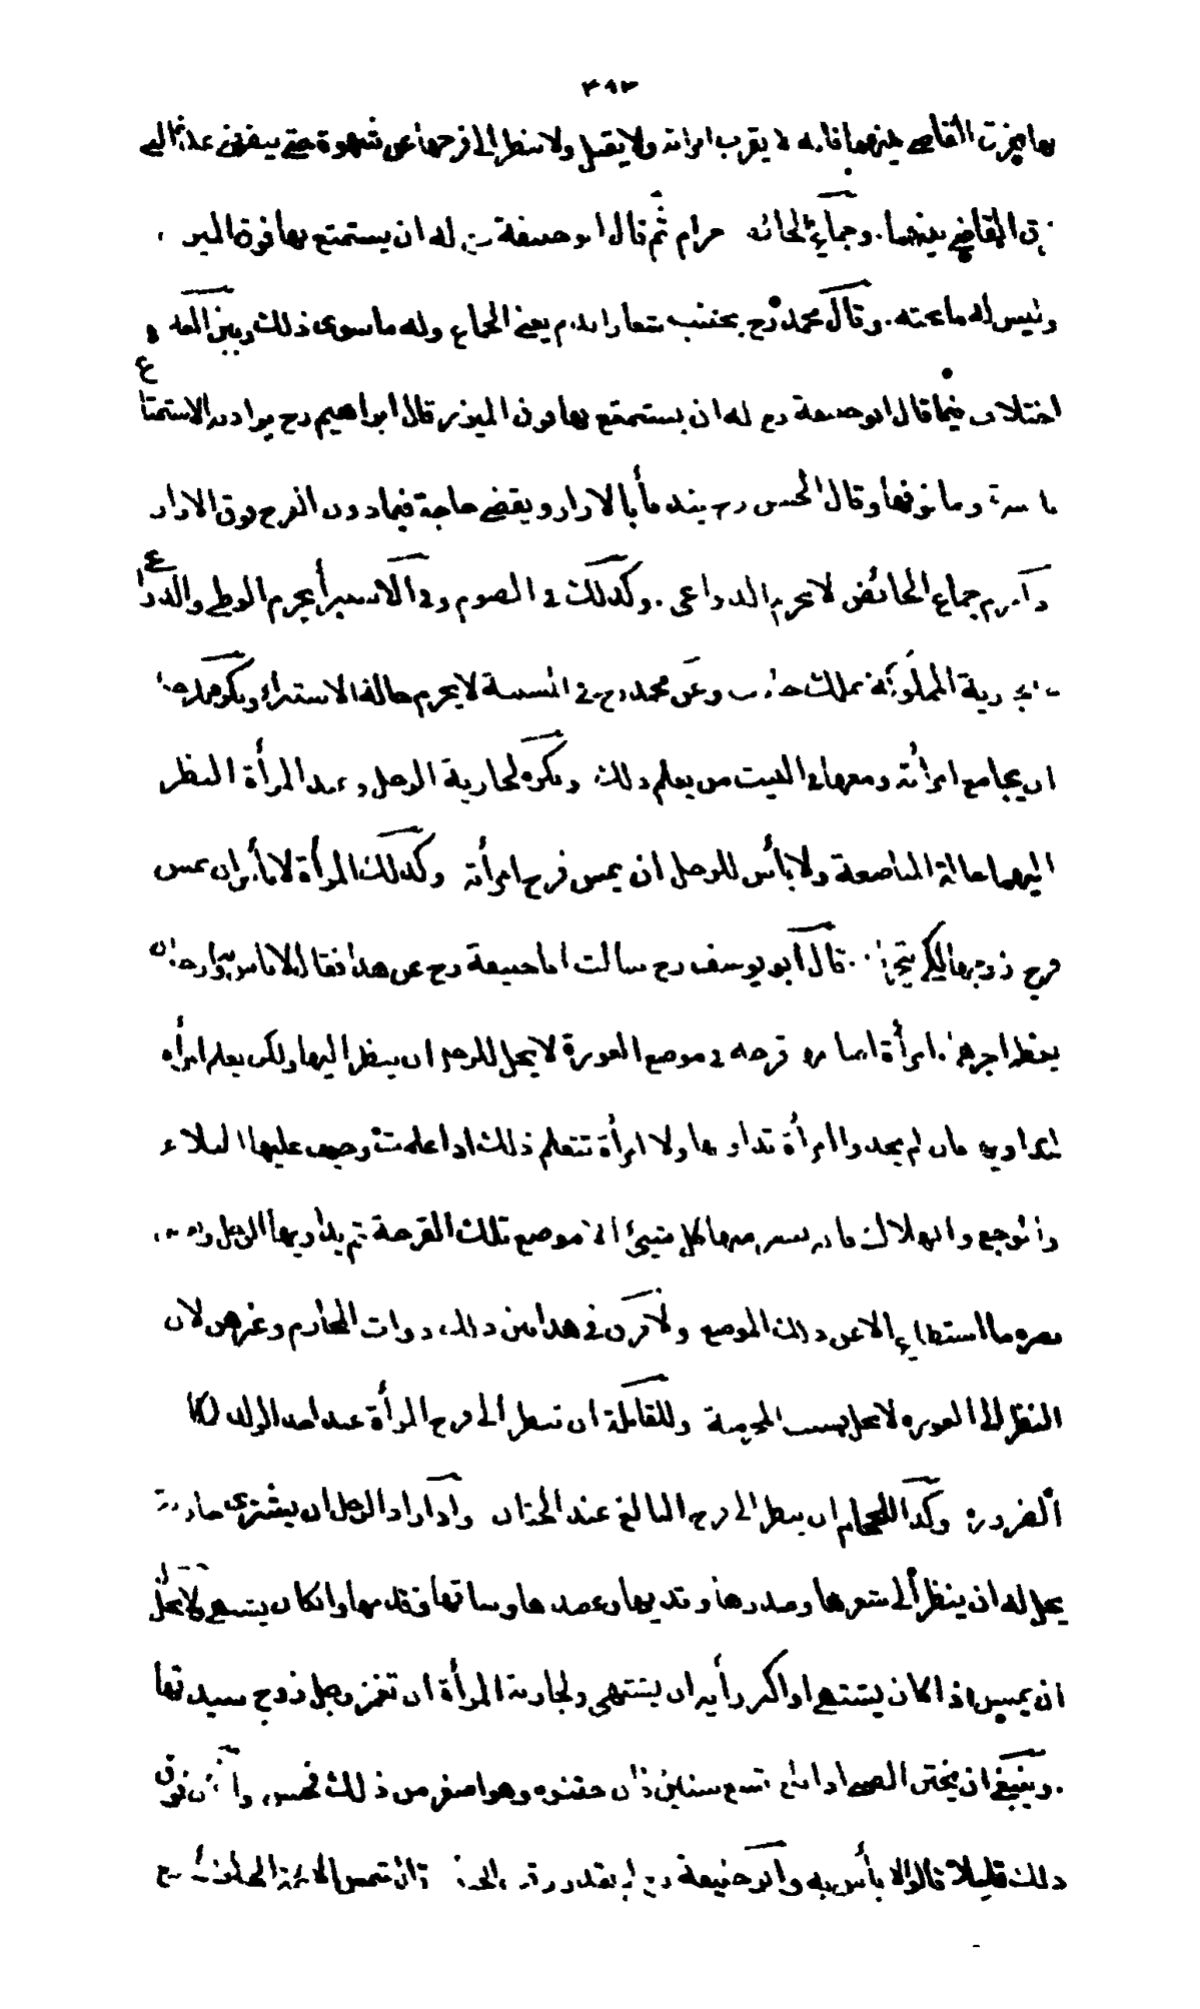 ٣٩٢
القاضي بينهما فانه لا يقرب امراته ولا يقبل ولا ينظر الى فرجها عن شهوة حتى
القاضي بينهما. وجماع الحائض حرام ثم قال ابو حنيفة رح له ان يستمتع بها فوق الميزر
وليس له ما تحته. وقال محمد رح يجتنب شعار الدم يعني الجماع وله ما سوى ذلك وبين
اختلاف فيما قال ابو حنيفة رح له ان يستمتع بها فوق الميزر قال ابراهيم رح يراد به الاستمتاع
وما فوقها وقال الحسن رح بالازار ويقضي حاجة فيما دون الفرج فوق الازار
جماع الحائض لا يحرم الدواعي. وكذلك في الصوم وفي الاستبرأ يحرم الوطي والدواعي
وعن محمد رح في المسبية لا يحرم حالة الاستبراء ويكره للرجل
ان يجامع امراته ومعها في البيت من يعلم ذلك ويكره لجارية الرجل المرأة النظر
اليهما حالة المباضعة ولا بأس للرجل ان يمس فرج امرأته وكذلك المرأة لا بأس ان تمس
فرج زوجها لكي يتحرك قال ابو يوسف رح سالت ابا حنيفة رح عن هذا فقال لا باس به وارجو ان
يعظم اجرهما. امرأة اصابها قرحة في موضع العورة لا يحل للرجل ان ينظر اليها ولكن يعلم امرأة
لتداويها فان لم يجدوا امرأة تداويها ولا امرأة تتعلم ذلك اذا علمت وخيف عليها البلاء
والوجع والهلاك فانه يستر منها كل شيئ الا موضع تلك القرحة ثم يداويها الرجل
بصره ما استطاع الا عن ذلك الموضع ولا فرق في هذا بين ذوات المحارم وغيرهن لان
النظر الى العورة لا يحل بسبب المحرمية وللقابلة ان تنظر الى فرج المرأة عند اخذ الولد لمكان
الضرورة وكذا للحجام ان ينظر الى فرج البالغ عند الختان واذا اراد الرجل ان يشتري جارية
يحل له ان ينظر الى شعرها وصدرها وثديها وعضدها وساقها وقدمها وان كان يشتهي ولا يحل
ان يمس اذا كان يشتهي او اكبر رأيه ان يشتهي ولجارية المرأة ان تغمز رجل زوج سيدتها
. وينبغي ان يختن الصبي اذا بلغ تسع سنين فان ختنوه وهو اصغر من ذلك فحسن وان كان فوق
ذلك قليلا قالوا لا بأس به وابو حنيفة رح لم يقدر وقت الختان شمس الائمة الحلواني